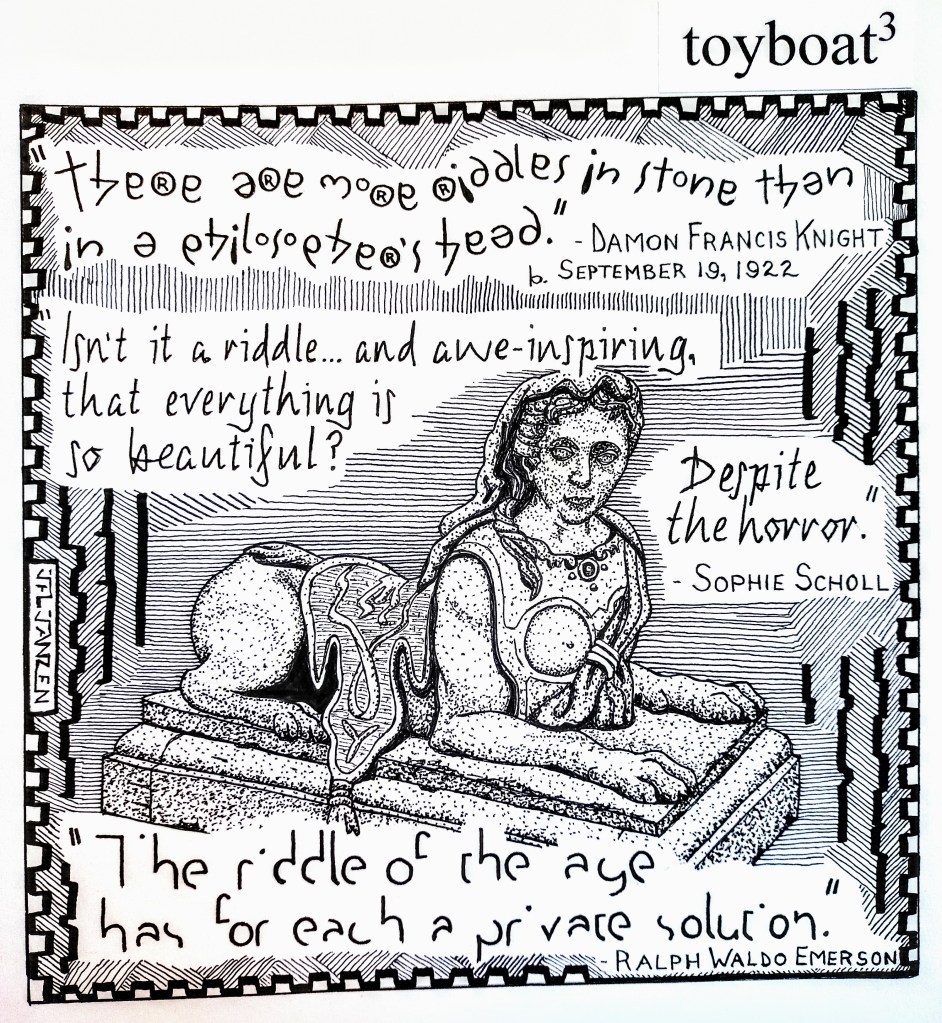 toyboat³
"There are more riddles in stone than
in a philosopher's head."
- DAMON FRANCIS KNIGHT
b. SEPTEMBER 19, 1922
"Isn't it a riddle... and awe-inspiring,
that everything is
so beautiful?
Despite
the horror."
- SOPHIE SCHOLL
JFL JANZEN
"The riddle of the age
has for each a private solution."
- RALPH WALDO EMERSON